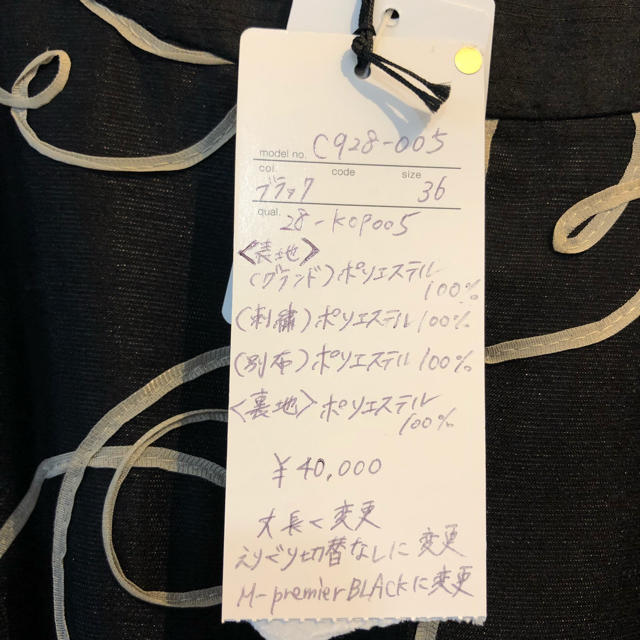 model no. C928-005
col. code size
ブラック 36
qual. 28-KOP005
<表地>
(グランド)ポリエステル
100%
(刺繍)ポリエステル100%
(別布)ポリエステル100%
<裏地>ポリエステル
100%
¥40,000
丈長く変更
えりぐり切替なしに変更
M-premierBLACKに変更